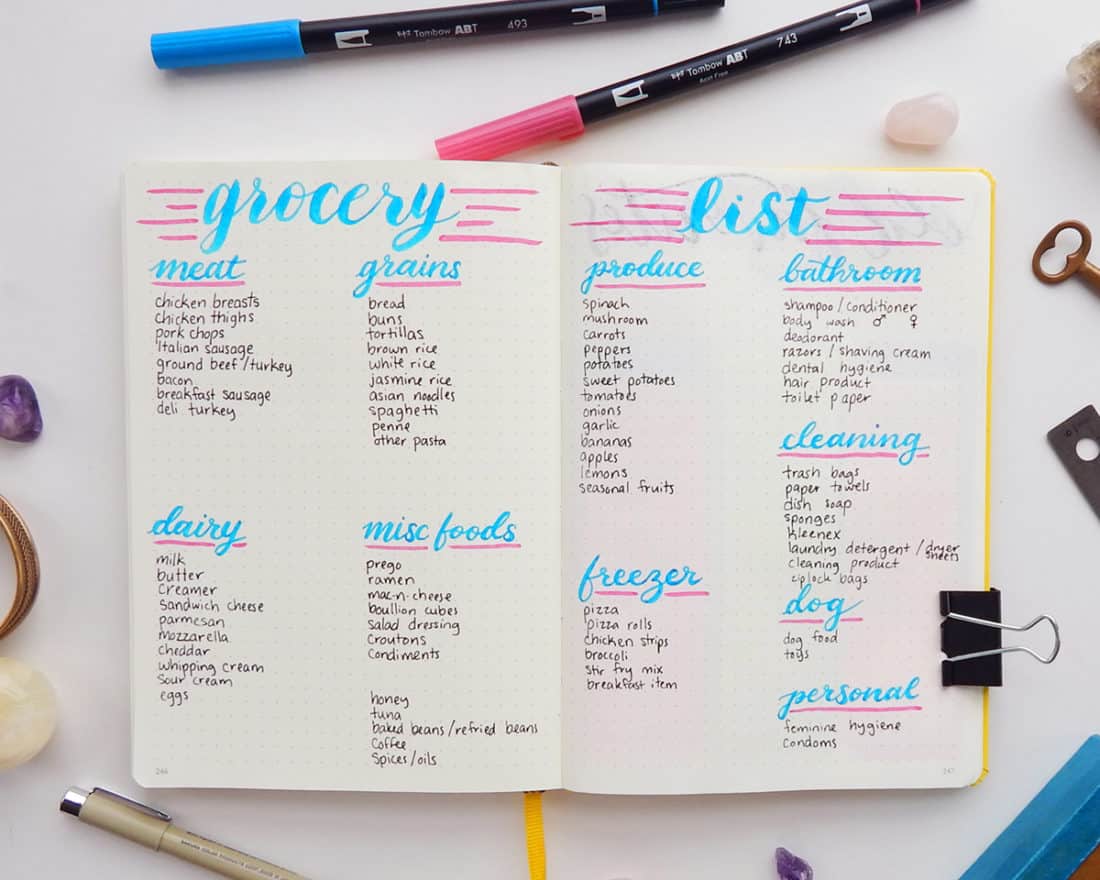 493
Tombow ABT
743
Tombow ABT
Acid Free
grocery
meat
chicken breasts
chicken thighs
pork chops
Italian sausage
ground beef/turkey
bacon
breakfast sausage
deli turkey
grains
bread
buns
tortillas
brown rice
white rice
jasmine rice
asian noodles
spaghetti
penne
other pasta
dairy
milk
butter
creamer
sandwich cheese
parmesan
mozzarella
cheddar
whipping cream
sour cream
eggs
misc foods
prego
ramen
mac-n-cheese
boullion cubes
salad dressing
croutons
condiments
honey
tuna
baked beans/refried beans
coffee
spices/oils
246
list
produce
spinach
mushroom
carrots
peppers
potatoes
sweet potatoes
tomatoes
onions
garlic
bananas
apples
lemons
seasonal fruits
freezer
pizza
pizza rolls
chicken strips
broccoli
stir fry mix
breakfast item
bathroom
shampoo/conditioner
body wash ♂ ♀
deodorant
razors / shaving cream
dental hygiene
hair product
toilet paper
cleaning
trash bags
paper towels
dish soap
sponges
kleenex
laundry detergent / dryer sheets
cleaning product
ziplock bags
dog
dog food
toys
personal
feminine hygiene
condoms
247